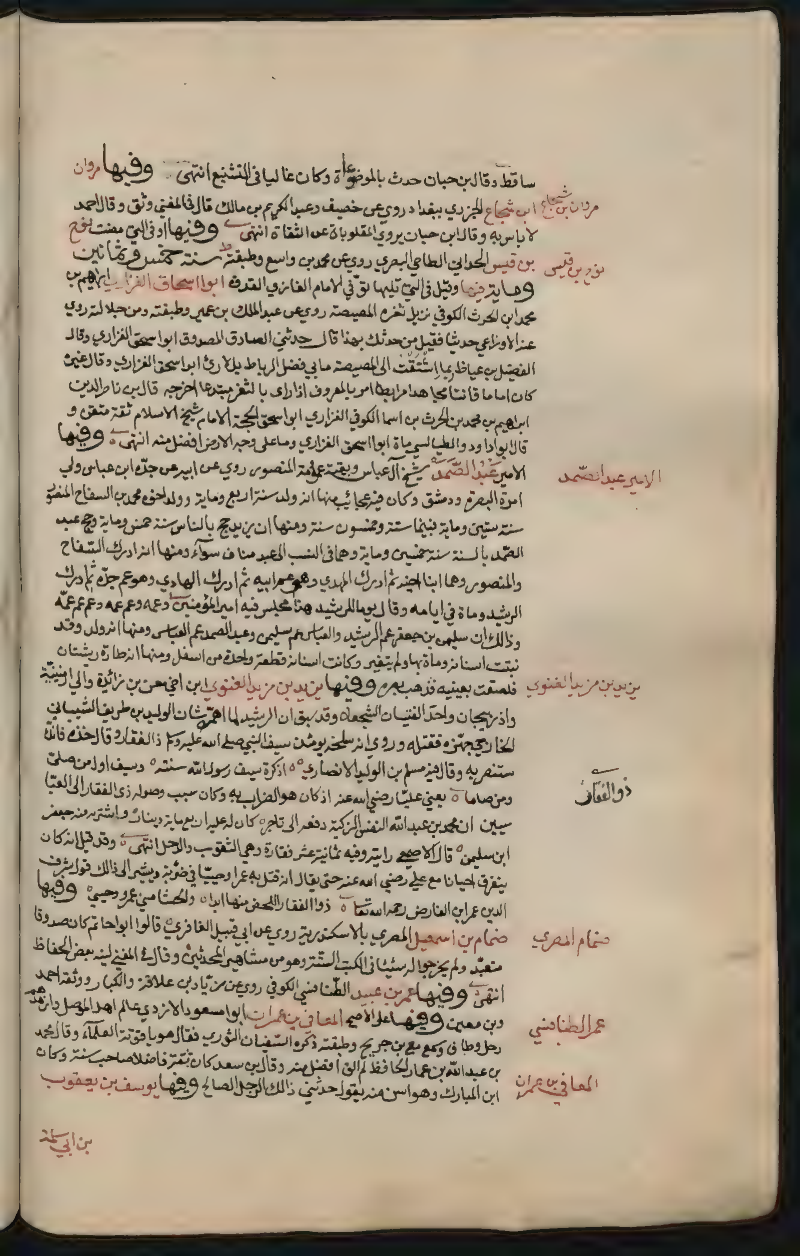 ساقط وقال بن حبان حدث بالموضوعاة وكان غاليا في التشيع انتهى وفيها مروان
مروان بن شجاع
ابن شجاع الجزري ببغداد روي عن خصيف وعبد الكريم بن مالك قال في المغني وثق وقال احمد
لا باس به وقال ابن حبان يروي المقلوباة عن الثقاة انتهى وفيها او في التي مضت نوح
نوح بن قيس
بن قيس الحداني الطاحي البصري روي عن محمد بن واسع وطبقته سنة خمس وثمانين
وماية فيها وقيل في التي تليها توفي الامام الغازي القدوة ابو اسحاق الفزاري ابراهيم بن
محمد ابن الحرث الكوفي نزيل ثغر المصيصة روي عن عبد الملك بن عمير وطبقته ومن جلالته روي
عنه الاوزاعي حديثا فقيل من حدثك بهذا قال حدثني الصادق المصدوق ابو اسحق الفزاري وقال
الفضيل بن عياض ربما اشتقت الى المصيصة مابي فضل الرباط بل لارى ابو اسحق الفزاري وقال غيره
كان اماما قانتا مجاهدا مرابطا امرا بالمعروف اذا راى بالثغر مبتدعا اخرجه قال بن ناصر الدين
ابراهيم بن محمد بن الحرث بن اسما الكوفي الفزاري ابو اسحق الحجة الامام شيخ الاسلام ثقة متقن و
قال ابو داود والطيالسي ماة ابو اسحق الفزاري وما على وجه الارض افضل منه انتهى وفيها
الامير عبد الصمد
الامير عبد الصمد شيخ آل عباس وبقية عمومة المنصور روي عن ابيه عن جده ابن عباس ولي
امرة البصرة ودمشق وكان فيه عجائب منها انه ولد سنة اربع وماية وولد اخوه محمد بن السفاح المنصور
سنة ستين وماية فبينهما ستة وخمسون سنة ومنها ان يزيد حج بالناس سنة خمس وماية وحج عبد
الصمد بالسنة سنة خمسين وماية وهما في النسب الى عبد مناف سواء ومنها انه ادرك السفاح
والمنصور وهما ابنا اخيه ثم ادرك المهدي وهو عم ابيه ثم ادرك الهادي وهو عم جده ثم ادرك
الرشيد وماة في ايامه وقال يوما للرشيد هذا مجلس فيه امير المؤمنين وعمه وعم عمه وعم عم عمه
وذلك ان سليمن بن جعفر عم الرشيد والعباس عم سليمن وعبد الصمد عم العباس ومنها انه ولد وقد
نبتت اسنانه وماة بها ولم يتغير وكانت اسنانه قطعة واحدة من اسفل ومنها انه طارة ريشتان
يزيد بن مزيد الغنوي
فلصقت بعينيه فذهب بصره وفيها يزيد بن مزيد الغنوي ابن اخي معن بن زائدة والي ارمينية
واذربيجان واحد الفتيان الشجعاة وقد سبق ان الرشيد لما اهمه شان الوليد بن طريف الشيباني
الخارجي جهزه فقتله وروي انه سلحه يومئذ سيف النبي صلى الله عليه وسلم ذا الفقار وقال خذه فانك
ستنصر به وقال فيه مسلم بن الوليد الانصاري اذكرة سيف رسول الله سنته وسيف اول من صلى
ذو الفقار
ومن صاما يعني عليا رضي الله عنه اذ كان هو الضراب به وكان سبب وصوله ذي الفقار الى العبا
سيين ان محمد بن عبد الله النفس الزكية دفعه الى تاجر كان له عليه اربع ماية دينار واشتراه منه جعفر
ابن سليمن قال الاصمعي رايته وفيه ثمانية عشر فقارة وهي الثقوب والدخل انتهى وقد قيل انه كان
يتفرق احيانا مع علي رضي الله عنه حتى يقال انه قتل به عمرا وحييا في ضربة ويشير الى ذالك قول شرف
الدين عمر ابن الفارض رحمه الله تعالى ذو الفقار اللحظ منها ابدا والحشا مني عمرو وحيي وفيها
ضمام المصري
ضمام بن اسمعيل المصري بالاسكندرية روي عن ابي قبيل المغافري قالوا ابو حاتم كان صدوقا
متعبد ولم يخرجوا له شيئا في الكتب الستة وهو من مشاهير المحدثين وقال في المغني لينه بعض الحفاظ
انتهى وفيها عمر بن عبيد الطنافسي الكوفي روي عن زياد بن علاقة والكبار ووثقه احمد
عمر الطنافسي
وبن معين وفيها على الاصح المعافى بن عمران ابو مسعود الازدي عالم اهل الموصل وزاهدهم
رحل وطاف وسمع مع بن جريج وطبقته ذكره السفيان الثوري فقال هو ياقوتة العلماء وقال محمد
بن عبد الله بن عمار الحافظ لم الق افضل منه وقال بن سعد كان ثقة فاضلا صاحب سنة وكان
المعافى بن عمران
ابن المبارك وهو اسن منه يقول حدثني ذالك الرجل الصالح وفيها يوسف بن يعقوب
بن ابي سلمة